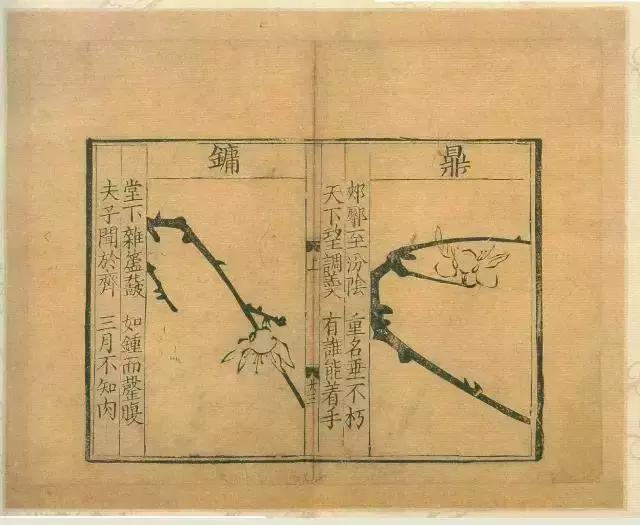 鼎
郟鄏至汾陰 重名垂不朽
天下望調羹 有誰能着手
上
鏞
堂下雜鼗鼓 如鍾而罄腹
夫子聞於齊 三月不知肉